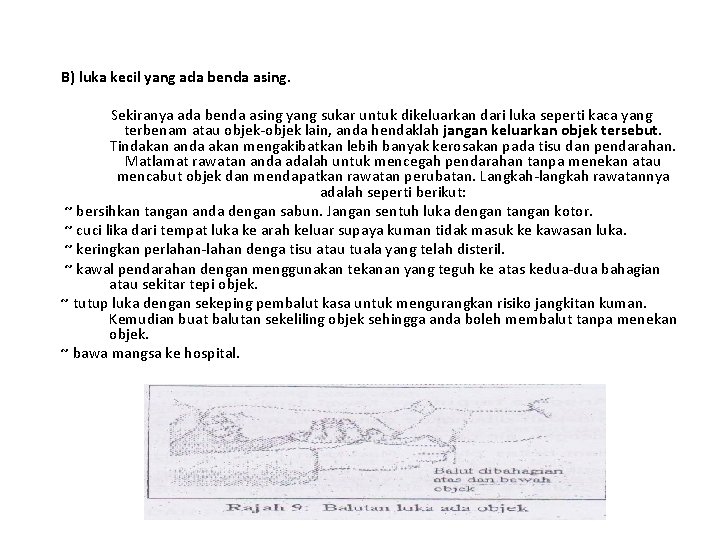 B) luka kecil yang ada benda asing.
Sekiranya ada benda asing yang sukar untuk dikeluarkan dari luka seperti kaca yang
terbenam atau objek-objek lain, anda hendaklah jangan keluarkan objek tersebut.
Tindakan anda akan mengakibatkan lebih banyak kerosakan pada tisu dan pendarahan.
Matlamat rawatan anda adalah untuk mencegah pendarahan tanpa menekan atau
mencabut objek dan mendapatkan rawatan perubatan. Langkah-langkah rawatannya
adalah seperti berikut:
~ bersihkan tangan anda dengan sabun. Jangan sentuh luka dengan tangan kotor.
~ cuci lika dari tempat luka ke arah keluar supaya kuman tidak masuk ke kawasan luka.
~ keringkan perlahan-lahan denga tisu atau tuala yang telah disteril.
~ kawal pendarahan dengan menggunakan tekanan yang teguh ke atas kedua-dua bahagian
atau sekitar tepi objek.
~ tutup luka dengan sekeping pembalut kasa untuk mengurangkan risiko jangkitan kuman.
Kemudian buat balutan sekeliling objek sehingga anda boleh membalut tanpa menekan
objek.
~ bawa mangsa ke hospital.
Balut dibahagian
atas dan bewah
objek
Rajah 9: Balutan luka ada objek